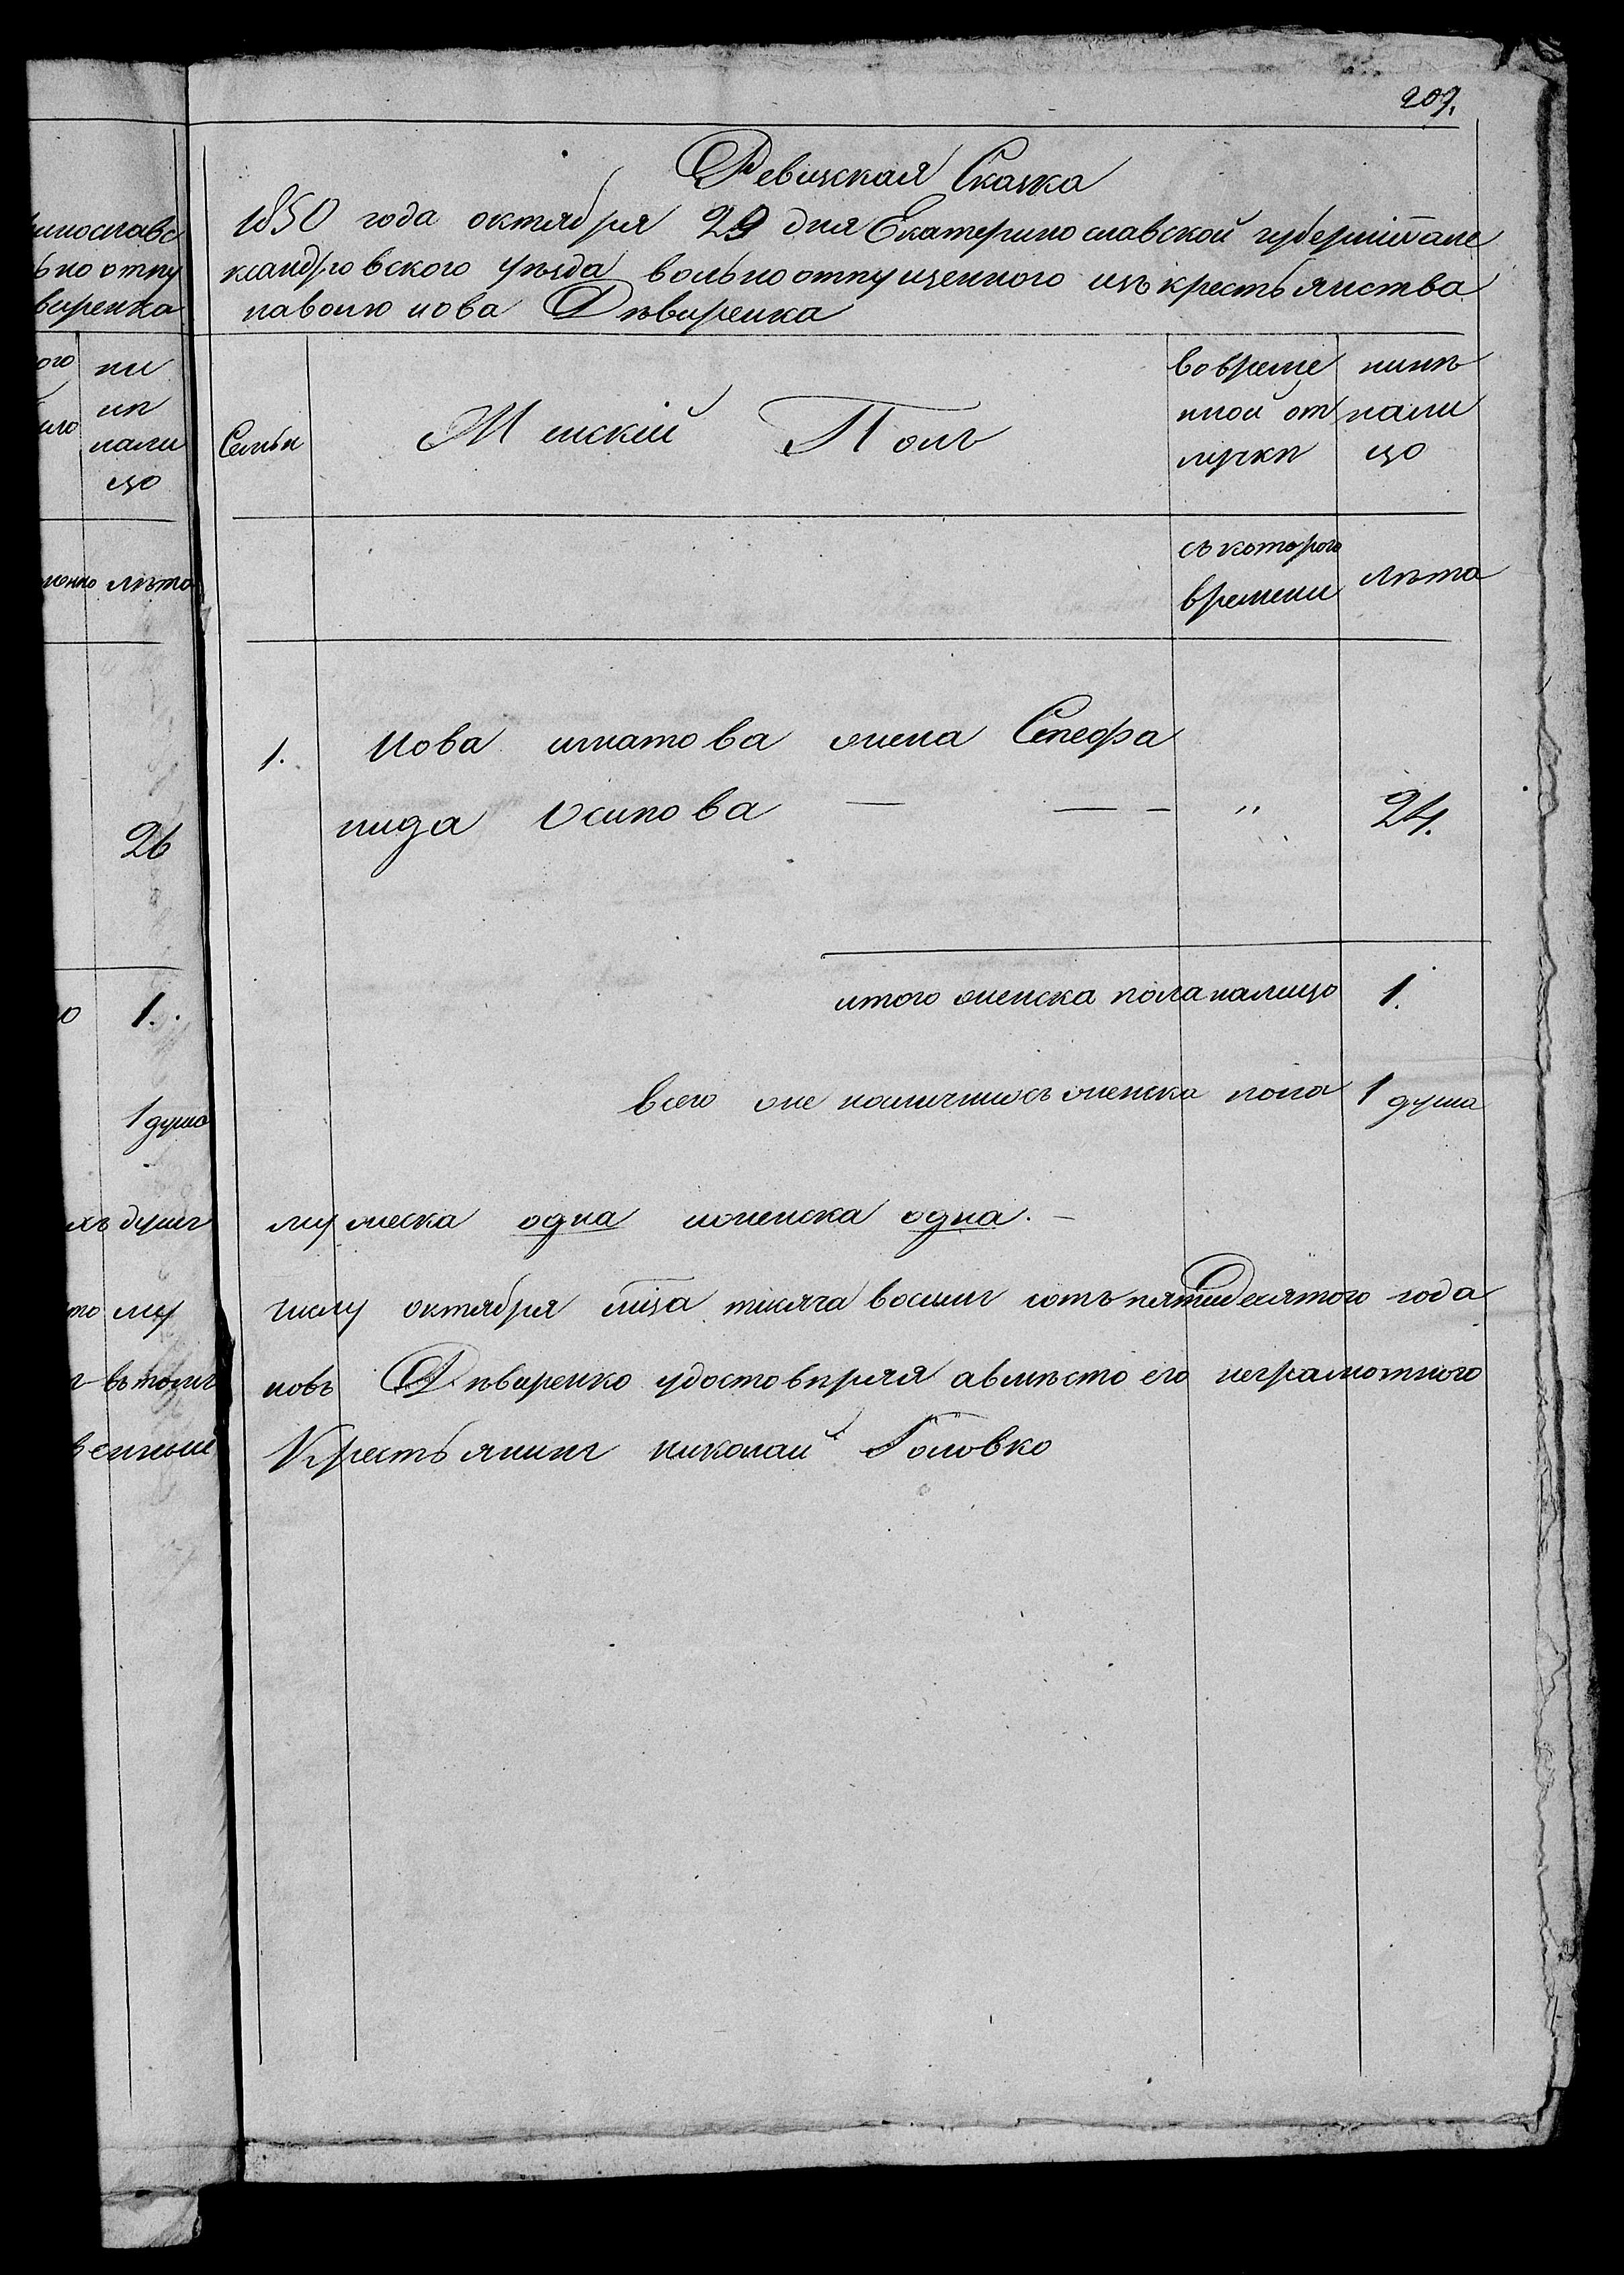 209.
Ревизская Сказка
1850 года октября 29 дня Екатеринославской губерніи але
ксандровского уѣзда вольноотпущенного изъ крестьянства
наволю иова Дѣвиренка
Семьи
Женскій Полъ
вовреме
нной от
лучкѣ
нинѣ
нали
цо
съ которого
времени
лѣта
1. Иова игнатова жена Стефа
нида Осипова — — - " 24.
итого женска пола налицо 1.
всего же наличнось женска пола 1 душа
мужеска одна иженска одна. —
числу октября мца тисяча восимг сотъ пятидесятого года
новъ Дѣвиренко удостовѣряя авмѣсто его неграмотного
Крестьянинг николай Головко
инославс
ьно отпу
виренка
ого
ни
нѣ
нали
цо
лѣта
26
1.
1 душа
хъ душг
то му
въ томг